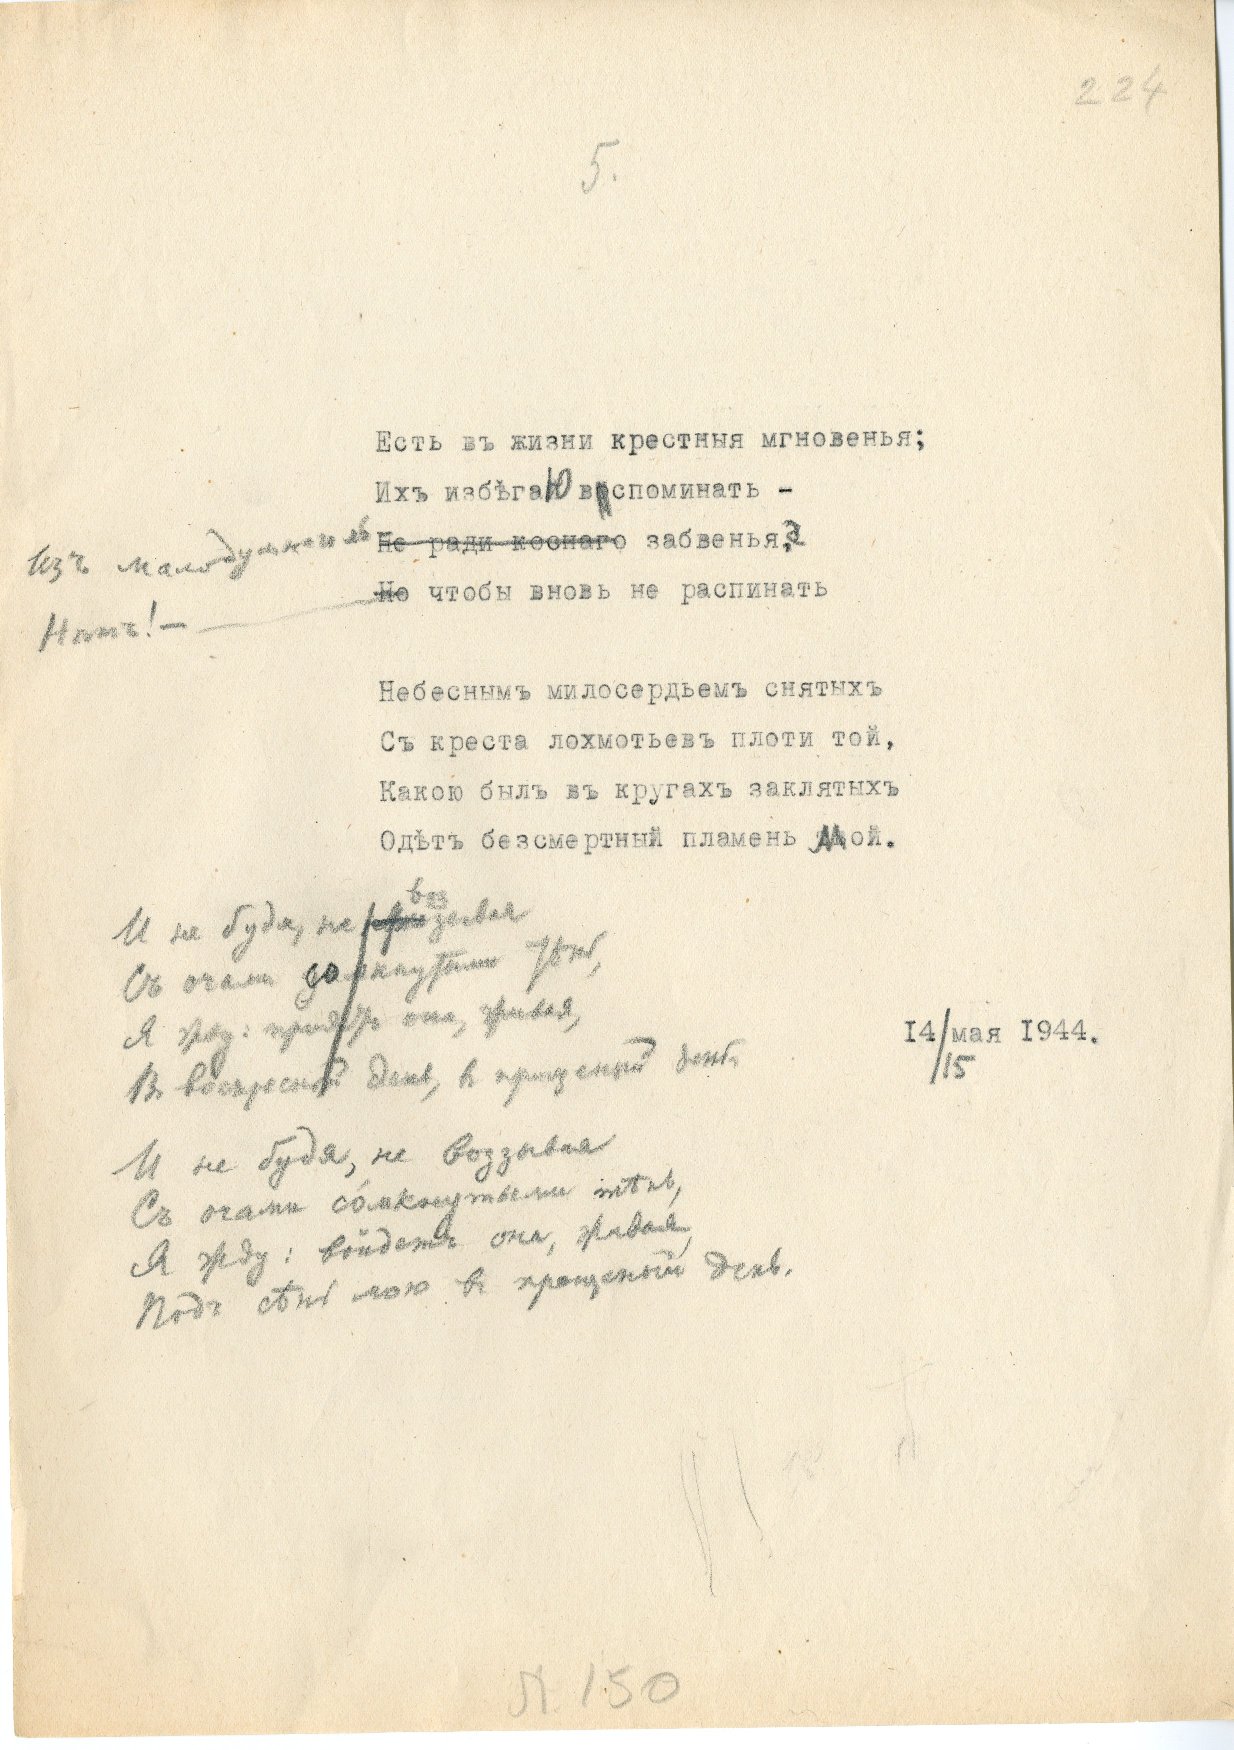 224
5.
Есть въ жизни крестныя мгновенья;
Ихъ избѣгаю вспоминать –
Изъ малодушнаго ль
Не ради коснаго забвенья?
Нѣтъ! –
Но чтобы вновь не распинать
Небеснымъ милосердьемъ снятыхъ
Съ креста лохмотьевъ плоти той,
Какою былъ въ кругахъ заклятыхъ
Одѣтъ безсмертный пламень мой.
И не будя, не взывая
воз
Съ очами сомкнутыми тѣнь,
Я жду: придетъ она, живая,
14/15 мая 1944.
В воскресный день, в прощеный день.
И не будя, не воззывая
Съ очами сомкнутыми тѣнь,
Я жду: войдетъ она, живая,
Подъ сѣнь мою в прощеный день.
Л. 150